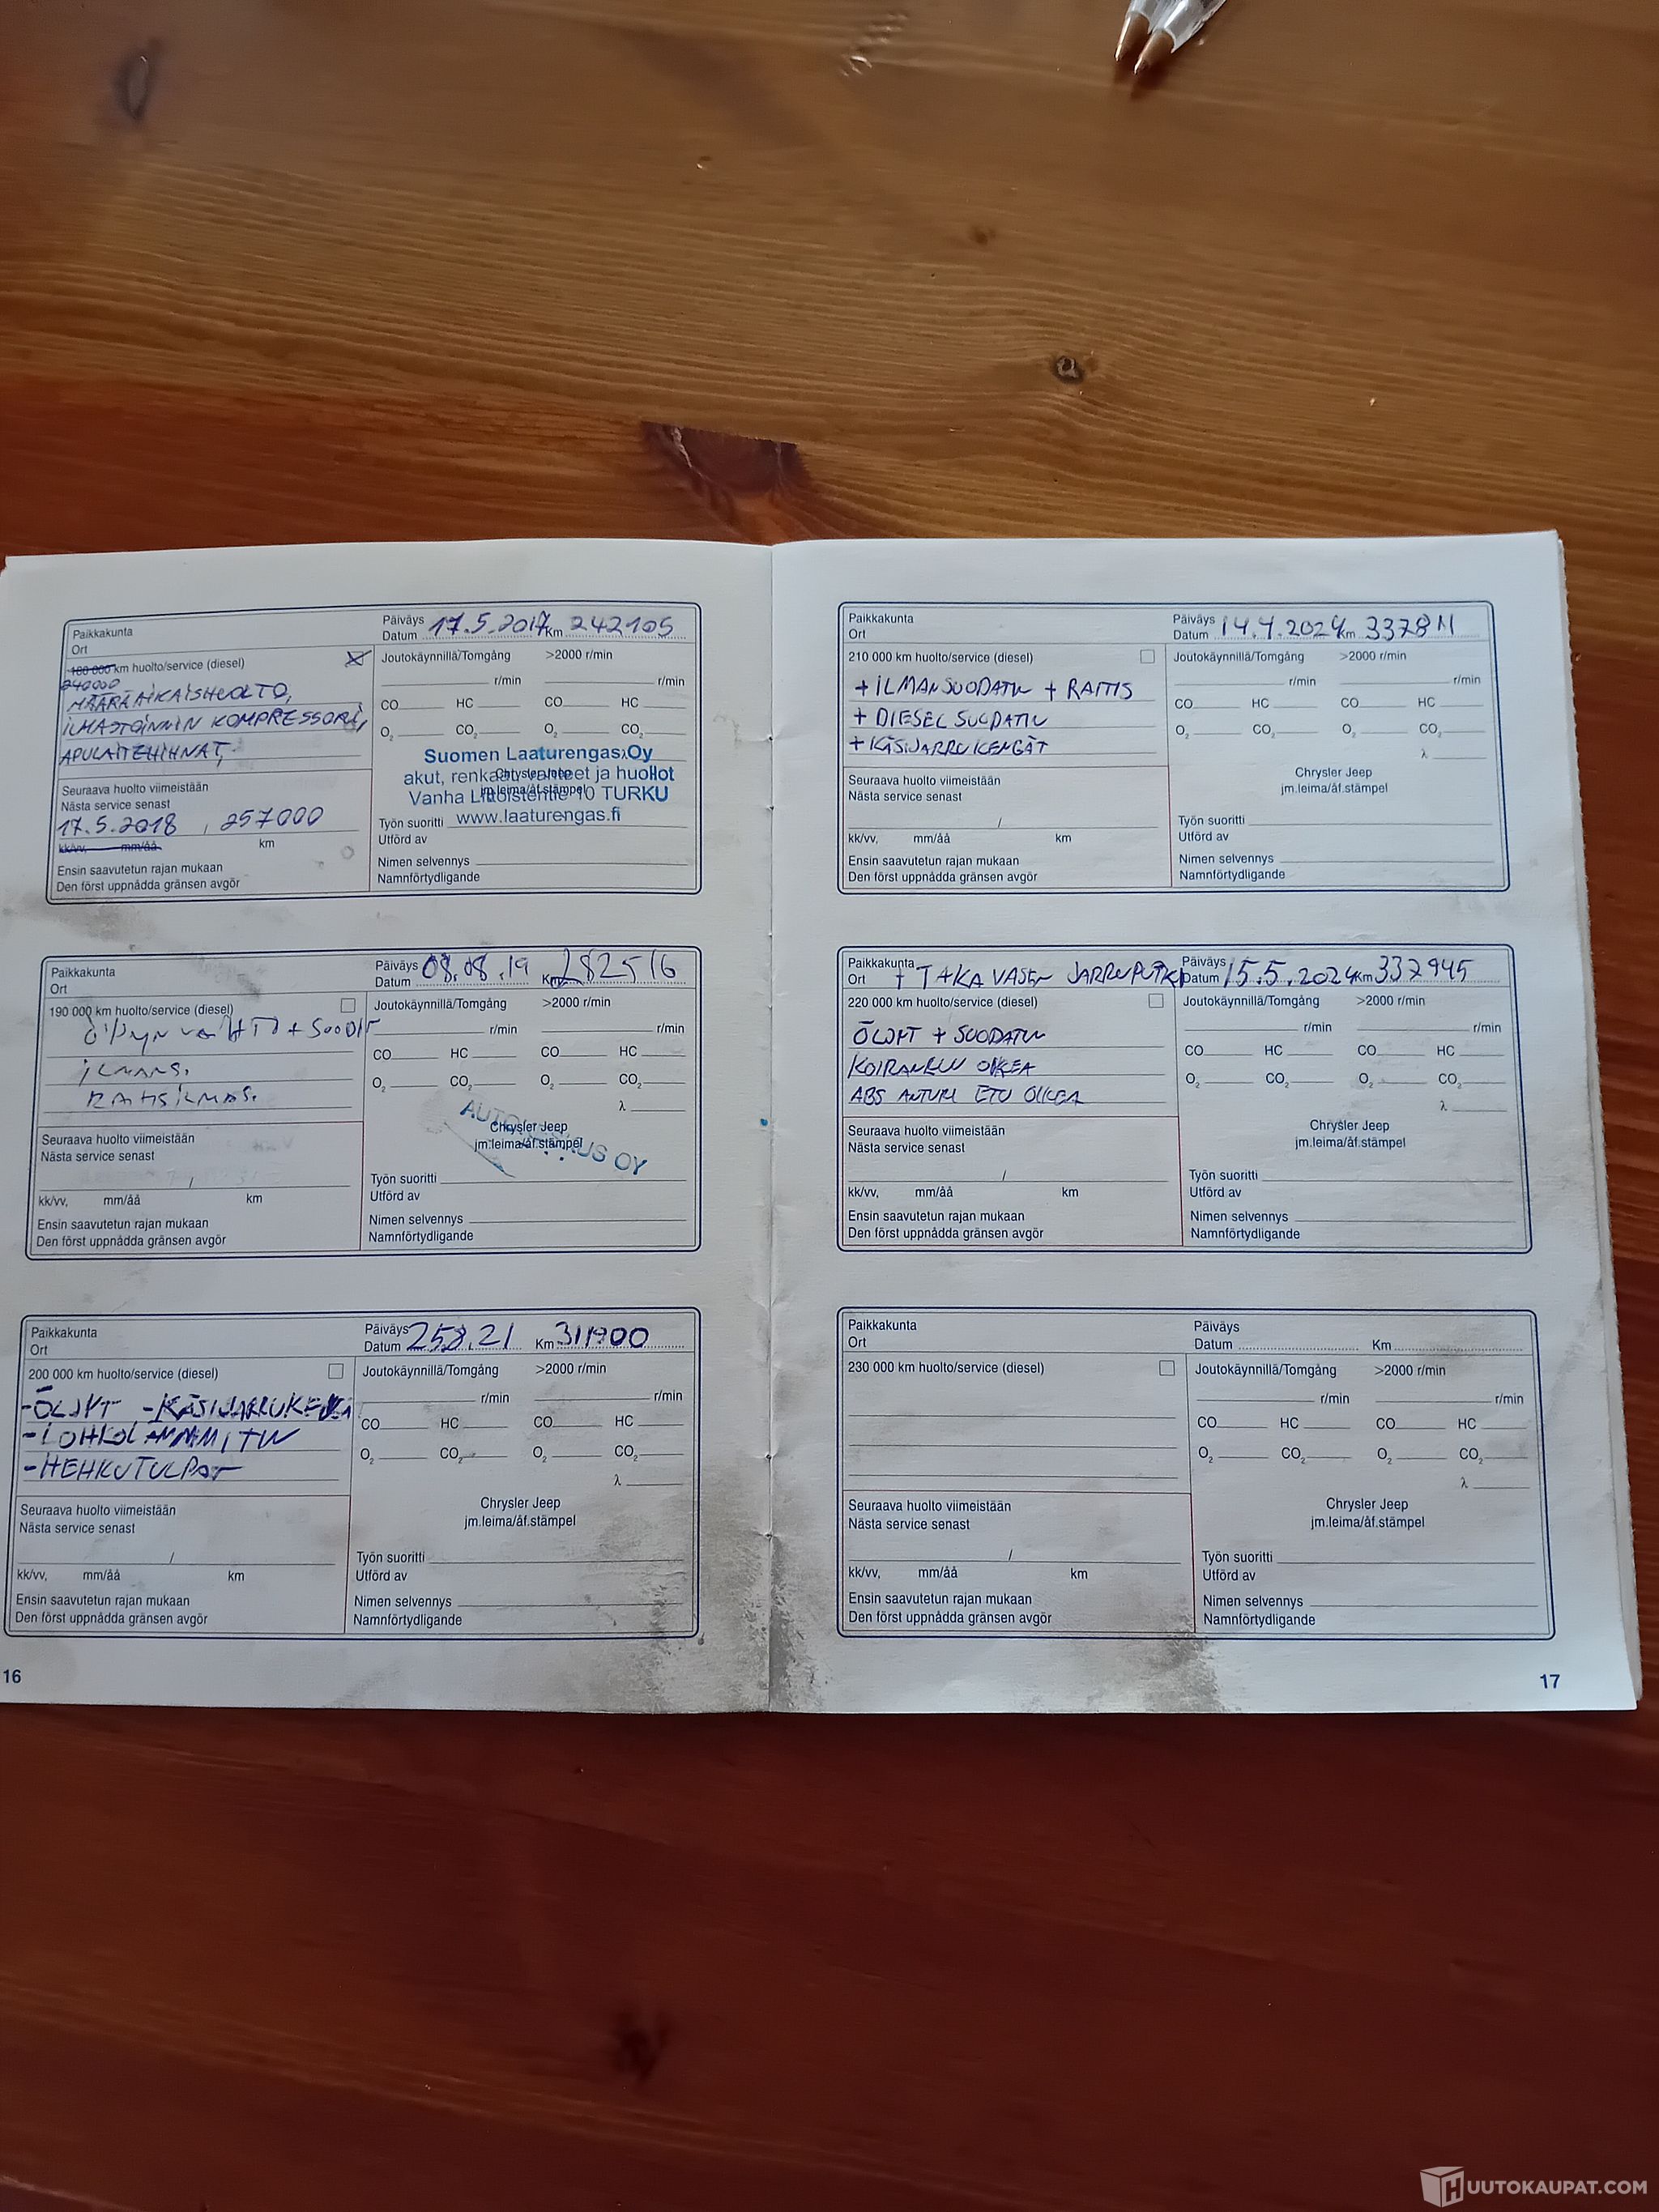 Paikkakunta
Ort
Päiväys
Datum 17.5.2017 Km 242105
180 000 km huolto/service (diesel)
240000
MÄÄRÄAIKAISHUOLTO,
ILMASTOINNIN KOMPRESSORI,
APULAITEHIHNAT,
Seuraava huolto viimeistään
Nästa service senast
17.5.2018 , 257000
kk/vv, mm/åå km
Ensin saavutetun rajan mukaan
Den först uppnådda gränsen avgör
Joutokäynnillä/Tomgång >2000 r/min
r/min r/min
CO HC CO HC
O2 CO2 O2 CO2
λ
Suomen Laaturengas Oy
akut, renkaat, vanteet ja huollot
Chrysler Jeep
jm.leima/åf.stämpel
Vanha Littoistentie 10 TURKU
www.laaturengas.fi
Työn suoritti
Utförd av
Nimen selvennys
Namnförtydligande
Paikkakunta
Ort
Päiväys
Datum 08.08.19 Km 282516
190 000 km huolto/service (diesel)
+
Seuraava huolto viimeistään
Nästa service senast
/
kk/vv, mm/åå km
Ensin saavutetun rajan mukaan
Den först uppnådda gränsen avgör
Joutokäynnillä/Tomgång >2000 r/min
r/min r/min
CO HC CO HC
O2 CO2 O2 CO2
λ
Chrysler Jeep
jm.leima/åf.stämpel
OY
Työn suoritti
Utförd av
Nimen selvennys
Namnförtydligande
Paikkakunta
Ort
Päiväys
Datum Km 311900
200 000 km huolto/service (diesel)
-ÖLJYT
-LOHKOLÄMMITIN
-HEHKUTULPAT
Seuraava huolto viimeistään
Nästa service senast
/
kk/vv, mm/åå km
Ensin saavutetun rajan mukaan
Den först uppnådda gränsen avgör
Joutokäynnillä/Tomgång >2000 r/min
r/min r/min
CO HC CO HC
O2 CO2 O2 CO2
λ
Chrysler Jeep
jm.leima/åf.stämpel
Työn suoritti
Utförd av
Nimen selvennys
Namnförtydligande
16
Paikkakunta
Ort
Päiväys
Datum 14.4.2024 Km 337811
210 000 km huolto/service (diesel)
+ ILMANSUODATIN + RAITIS
+ DIESEL SUODATIN
+ KÄSIJARRUKENGÄT
Seuraava huolto viimeistään
Nästa service senast
/
kk/vv, mm/åå km
Ensin saavutetun rajan mukaan
Den först uppnådda gränsen avgör
Joutokäynnillä/Tomgång >2000 r/min
r/min r/min
CO HC CO HC
O2 CO2 O2 CO2
λ
Chrysler Jeep
jm.leima/åf.stämpel
Työn suoritti
Utförd av
Nimen selvennys
Namnförtydligande
Paikkakunta
Ort + TAKA VASEN JARRUPUTKI
Päiväys
Datum 15.5.2024 Km 337945
220 000 km huolto/service (diesel)
ÖLJYT + SUODATIN
KOIRANLUU OIKEA
ABS ANTURI ETU OIKEA
Seuraava huolto viimeistään
Nästa service senast
/
kk/vv, mm/åå km
Ensin saavutetun rajan mukaan
Den först uppnådda gränsen avgör
Joutokäynnillä/Tomgång >2000 r/min
r/min r/min
CO HC CO HC
O2 CO2 O2 CO2
λ
Chrysler Jeep
jm.leima/åf.stämpel
Työn suoritti
Utförd av
Nimen selvennys
Namnförtydligande
Paikkakunta
Ort
Päiväys
Datum Km
230 000 km huolto/service (diesel)
Seuraava huolto viimeistään
Nästa service senast
/
kk/vv, mm/åå km
Ensin saavutetun rajan mukaan
Den först uppnådda gränsen avgör
Joutokäynnillä/Tomgång >2000 r/min
r/min r/min
CO HC CO HC
O2 CO2 O2 CO2
λ
Chrysler Jeep
jm.leima/åf.stämpel
Työn suoritti
Utförd av
Nimen selvennys
Namnförtydligande
17
HUUTOKAUPAT.COM